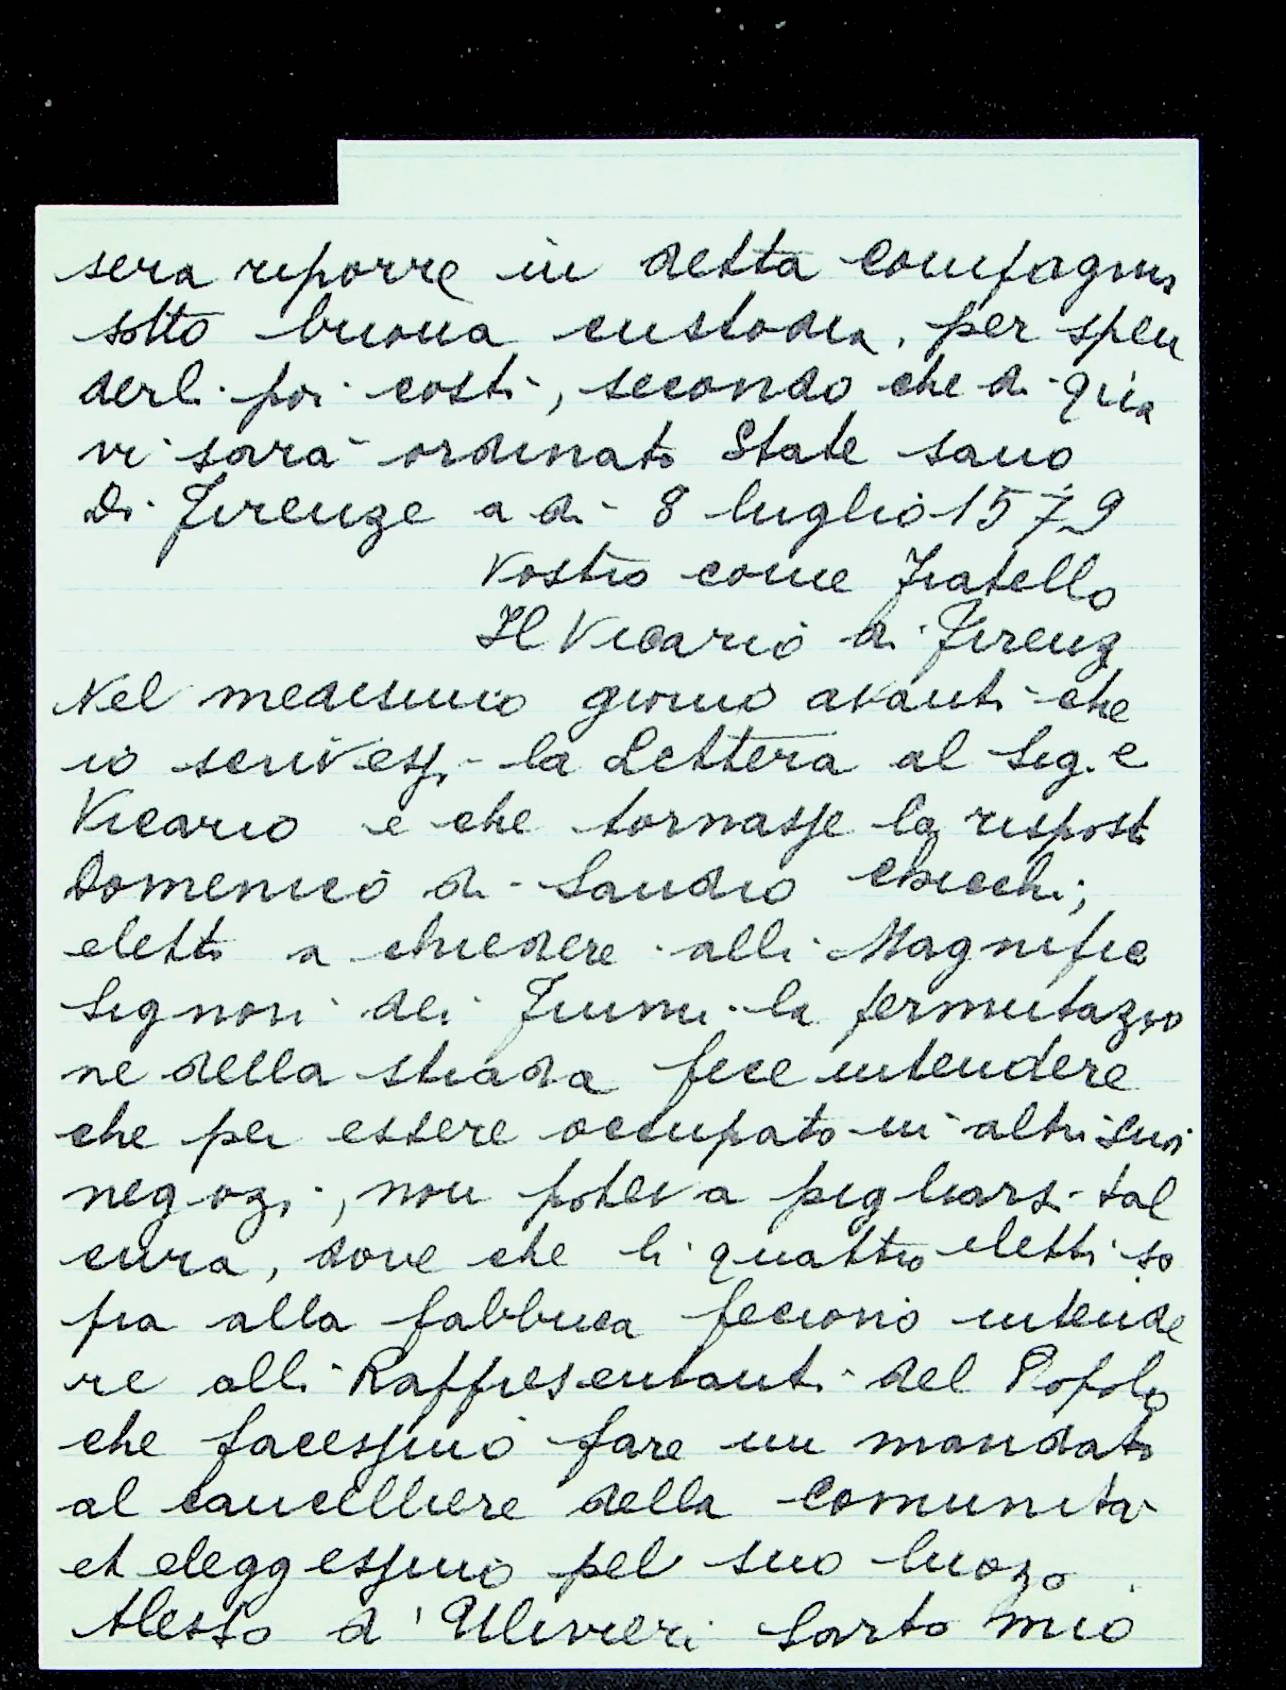 sera riporre in detta Compagnia
sotto buona custodia, per spen
derli poi costi, secondo che di qua
vi sarà ordinato State sano
Di Firenze a di 8 luglio 1579
Vostro come Fratello
Il Vicario di Firenz
Nel medesimo giorno avanti che
io scrivessi la Lettera al Sig.e
Vicario e che tornasse la rispost
Domenico di Sandro Checchi;
eletto a chiedere alli Magnific
Signori dei Fiumi la permutazio
ne della strada fece intendere
che per essere occupato in altri suoi
negozi, non poteva pigliarsi tal
cura, dove che li quattro eletti so
pra alla fabbrica feciono intende
re alli Rappresentanti del Popolo
che facessino fare un mandato
al cancelliere della Comunità
et eleggessino pel suo luogo
Alesso d'Ulivieri Sarto mio